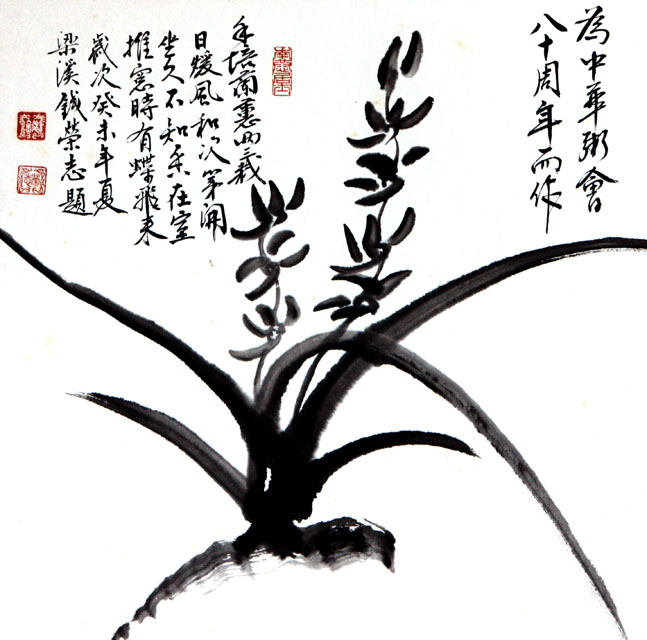 為中華粥會
八十周年而作
手培蘭蕙
日煖風和次第開
坐久不知香在室
推窗時有蝶飛來
歲次癸未年夏
梁溪錢榮志題